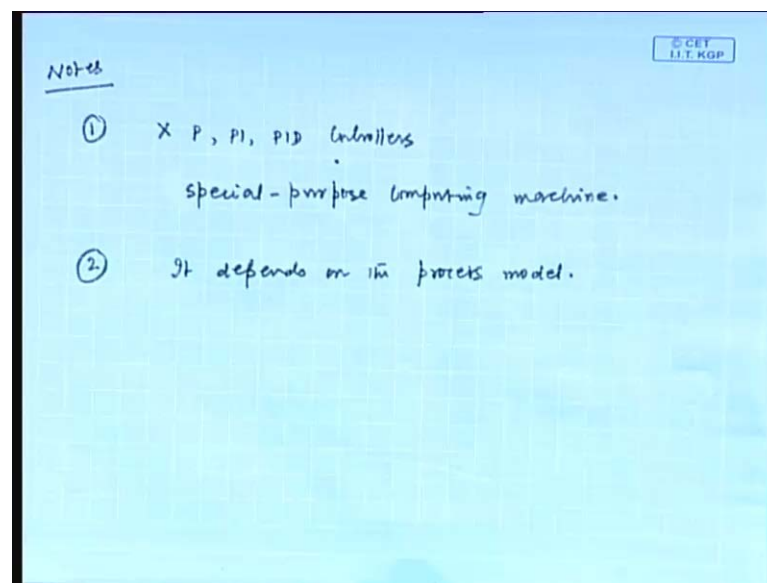 © CET
I.I.T. KGP
Notes
① X P, PI, PID Controllers
special-purpose computing machine.
② It depends on the process model.